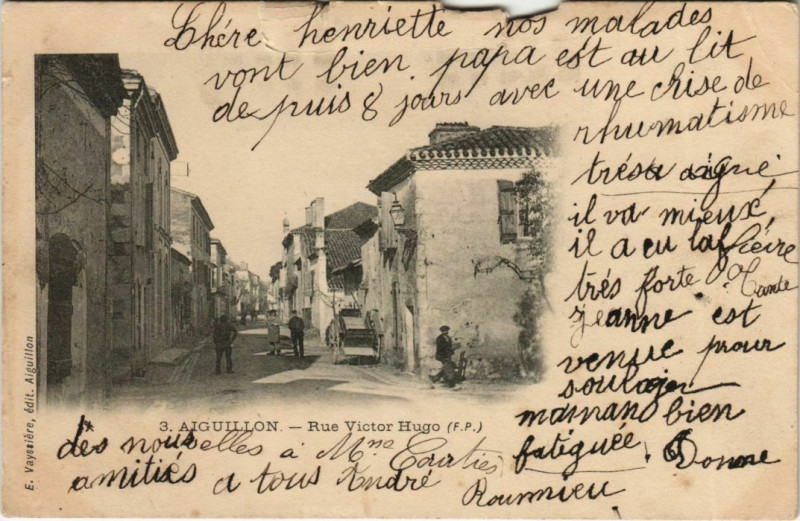 Chére henriette nos malades
vont bien papa est au lit
depuis 8 jours avec une chise de
rhumatisme
trés aigue
il va mieux,
il a eu la fievre
trés forte
Tante
jeanne est
venue pour
soulager
maman bien
fatiguée. Donne
des nouvelles à Mme
amitiés a tous André
Roumieu
3. AIGUILLON. — Rue Victor Hugo (F.P.)
E. Vayssière, édit. Aiguillon